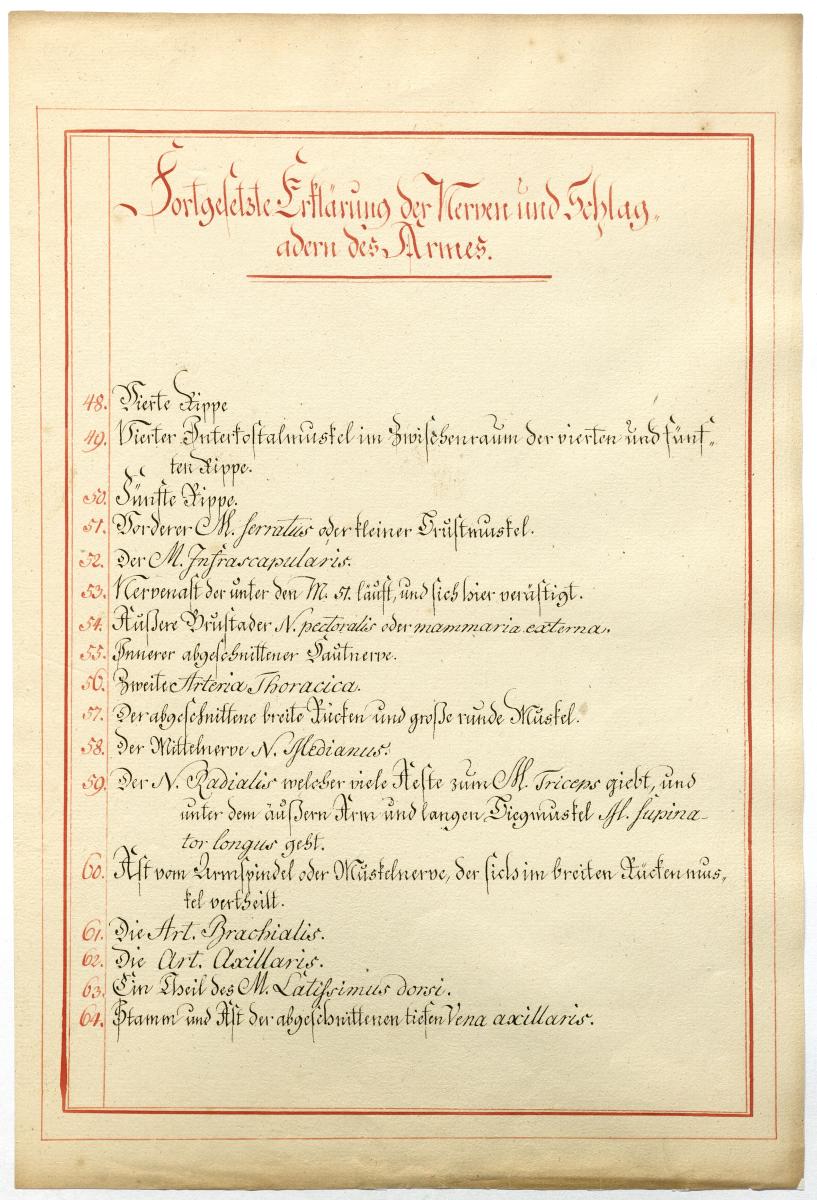 Fortgesetzte Erklärung der Nerven und Schlag-
adern des Armes.
48. Vierte Rippe
49. Vierter Interkostalmuskel im Zwischenraum der vierten und fünf-
ten Rippe.
50. Fünfte Rippe.
51. Vorderer M. serratus oder kleiner Brustmuskel.
52. Der M. Infrascapularis.
53. Nervenast der unter den M. 51. läuft, und sich hier verästigt.
54. Äußere Brustader N. pectoralis oder mammaria externa.
55. Innerer abgeschnittener Hautnerve.
56. Zweite Arteria Thoracica.
57. Der abgeschnittene breite Rücken und große runde Muskel.
58. Der Mittelnerve N. Medianus.
59. Der N. Radialis welcher viele Aeste zum M. Triceps giebt, und
unter dem äußern Arm und langen Biegmuskel M. supina-
tor longus geht.
60. Ast vom Armspindel oder Muskelnerve, der sich im breiten Rückenmus-
kel vertheilt.
61. Die Art. Brachialis.
62. Die Art. Axillaris.
63. Ein Theil des M. Latissimus dorsi.
64. Stamm und Ast der abgeschnittenen tiefen Vena axillaris.